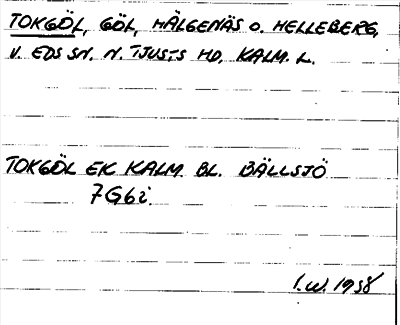 TOKGÖL, GÖL, HÄLGENÄS O. HELLEBERG,
V. EDS SN. N. TJUSTS HD. KALM. L.
TOKGÖL EK KALM. BL. BÄLLSJÖ
7G6i.
I.W. 1958